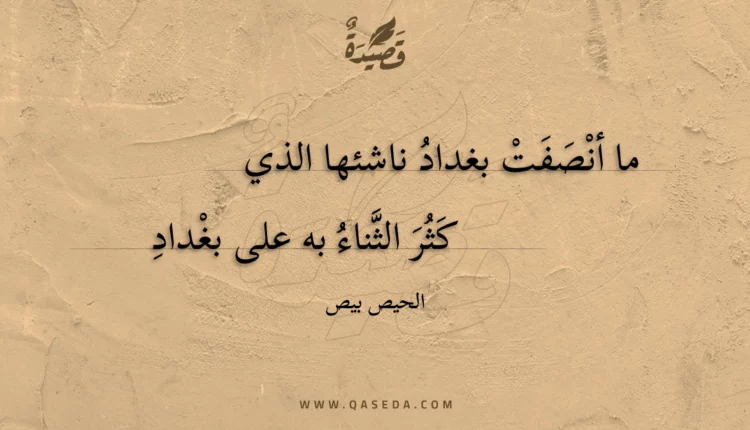 قَصِيْدَةٌ
ما أنْصَفَتْ بغدادُ ناشئها الذي
كَثُرَ الثَّناءُ به على بغْدادِ
الحيص بيص
WWW.QASEDA.COM